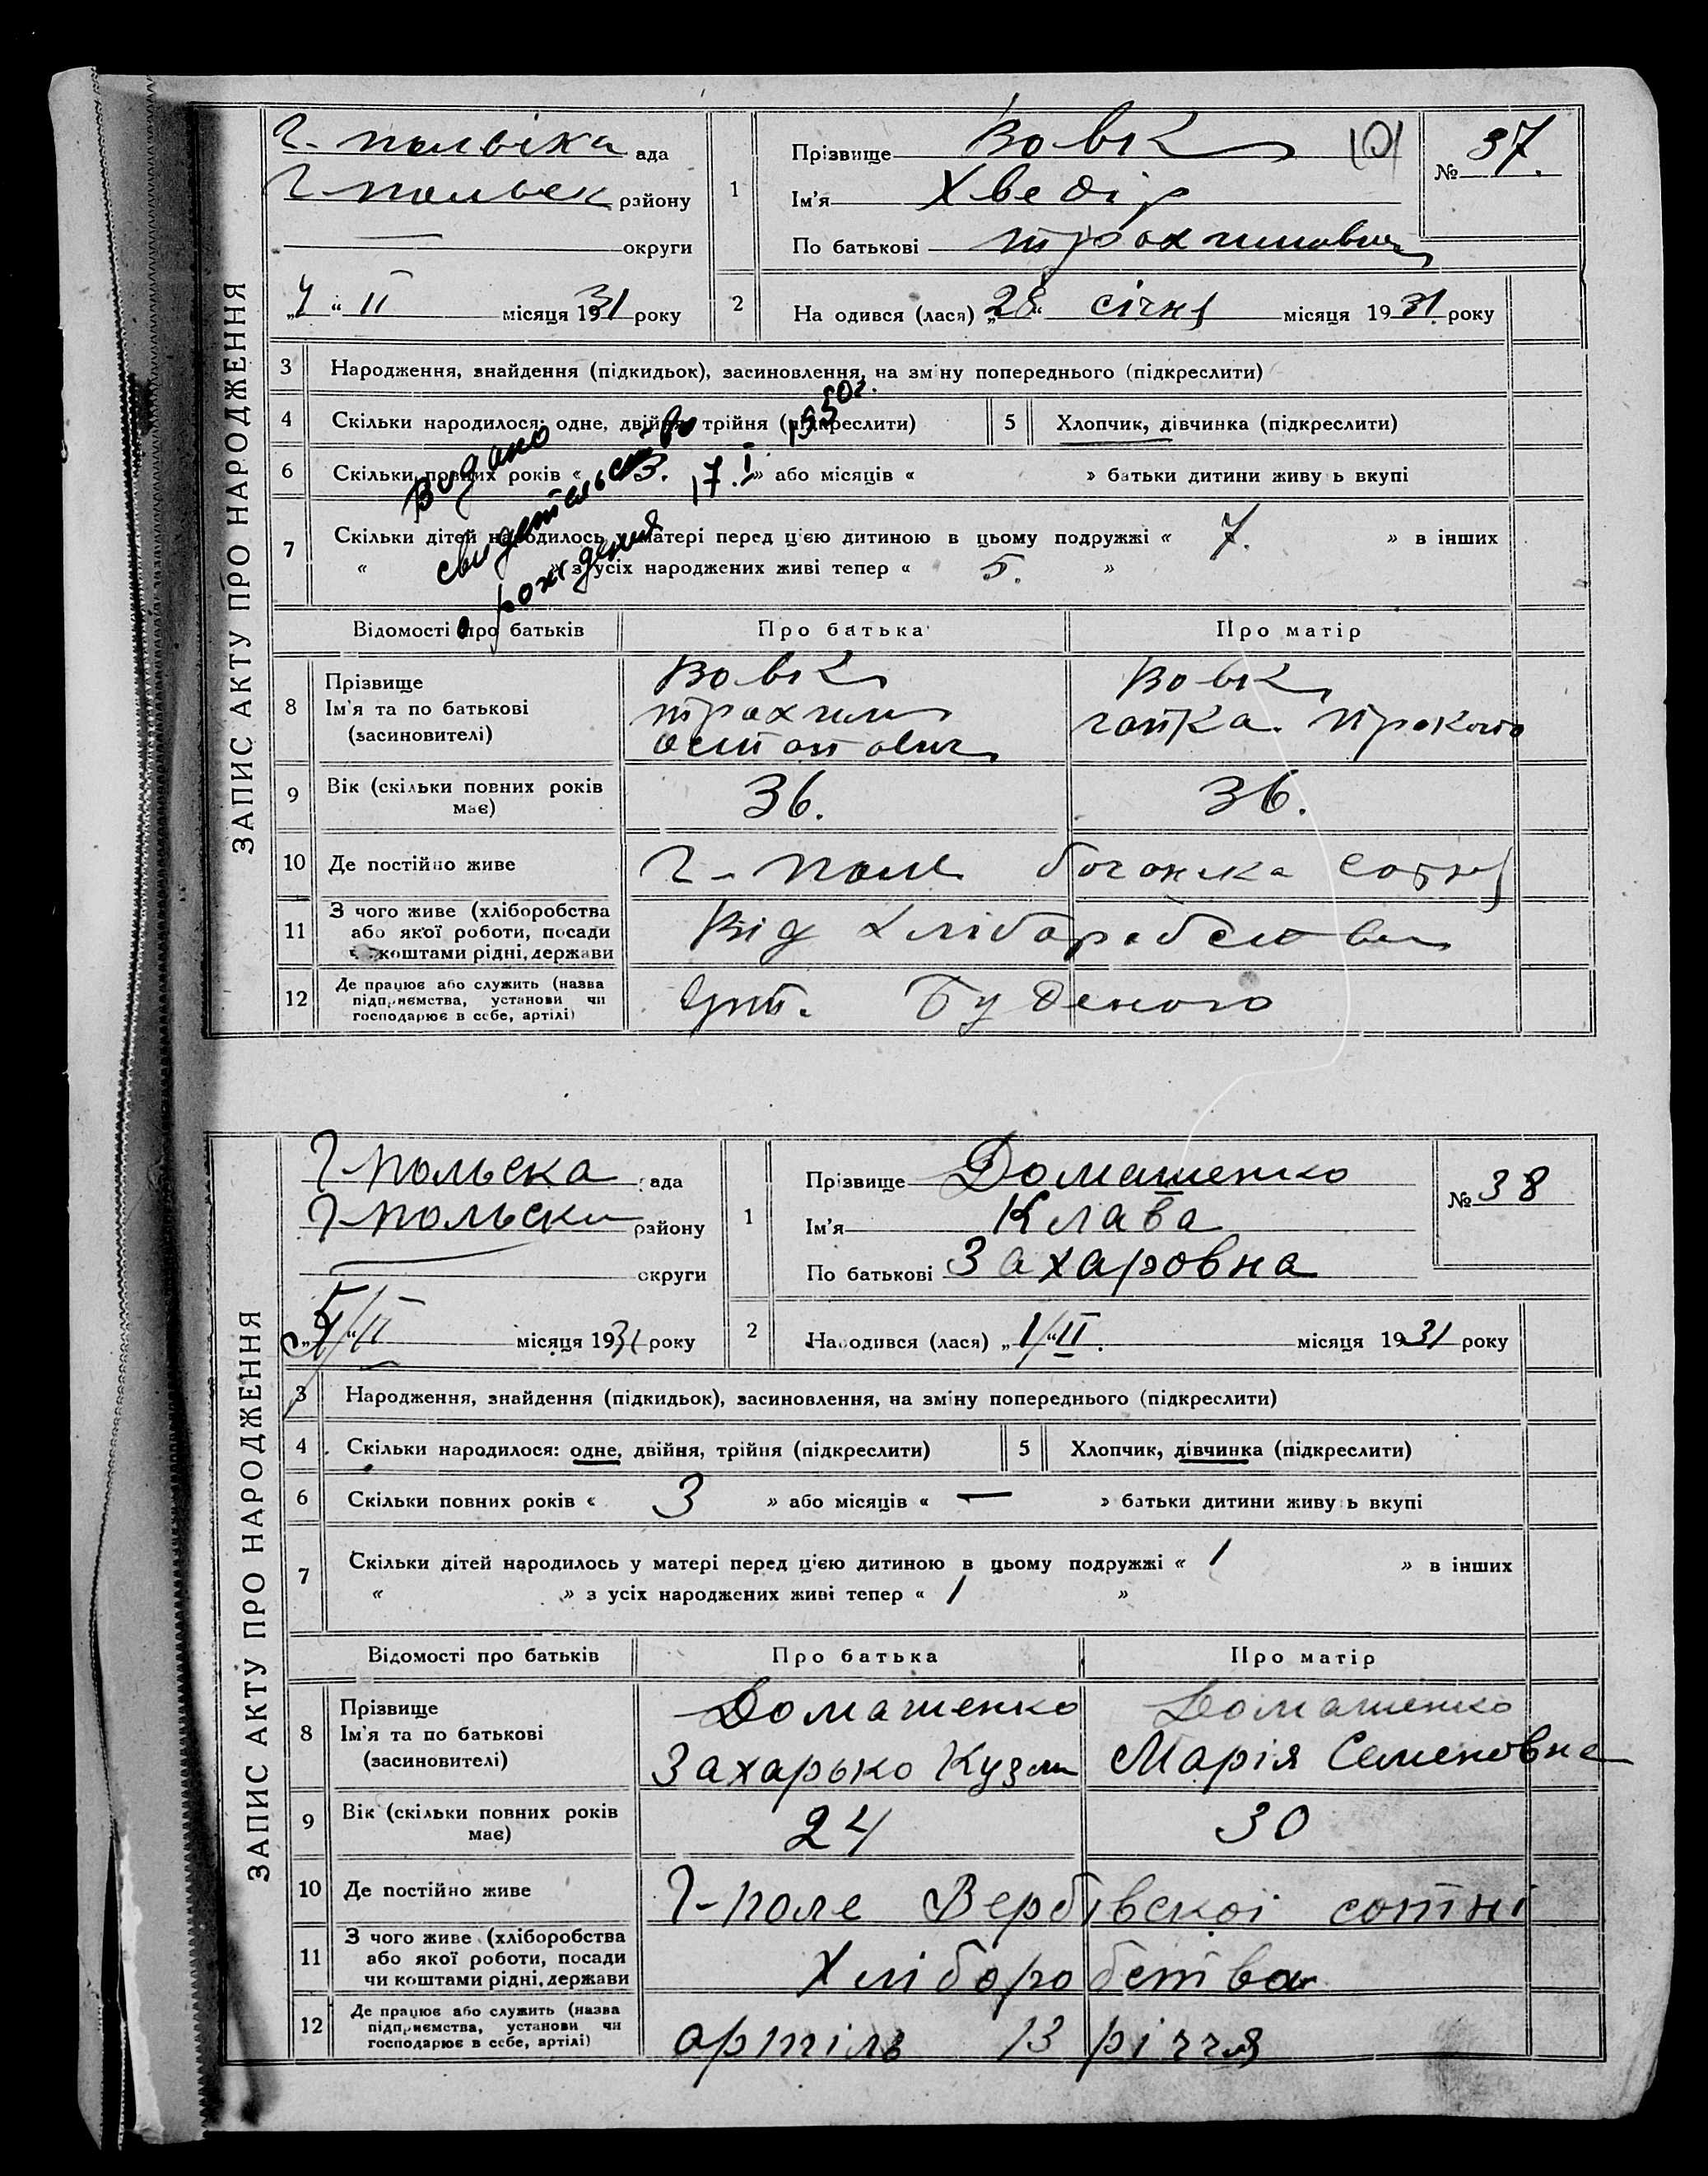 ЗАПИС АКТУ ПРО НАРОДЖЕННЯ
Г-польська ада
Г-польск району
округи
„4“ II місяця 1931 року
1
Прізвище Вовк 101
Ім'я Хведір
По батькові Трохимович
№ 37.
2 На одився (лася) „28“ січня місяця 1931 року
3 Народження, знайдення (підкидьок), засиновлення, на зміну попереднього (підкреслити)
4 Скільки народилося: одне, двійня, трійня (підкреслити) 5 Хлопчик, дівчинка (підкреслити)
6 Скільки повних років « 3. » або місяців « » батьки дитини живу ь вкупі
7 Скільки дітей народилось у матері перед цією дитиною в цьому подружжі « 7. » в інших
« » з усіх народжених живі тепер « 5. »
Видано
свидетельство
о рождении 17.I 1950г.
Відомості про батьків Про батька Про матір
8 Прізвище Ім'я та по батькові (засновителі)
Вовк
Трохим
Остапович
Вовк
гапка. Проков
9 Вік (скільки повних років має) 36. 36.
10 Де постійно живе Г-поле сотня
11 З чого живе (хліборобства або якої роботи, посади чи коштами рідні, держави Від хліборобства
12 Де працює або служить (назва підприємства, установи чи господарює в себе, артілі) Буденого
ЗАПИС АКТУ ПРО НАРОДЖЕННЯ
Г-польска ада
Г-польски району
округи
„5“/II місяця 1931 року
1
Прізвище Домашенко
Ім'я Клава
По батькові Захаровна
№ 38
2 Народився (лася) „1/“II. місяця 1931 року
3 Народження, знайдення (підкидьок), засиновлення, на зміну попереднього (підкреслити)
4 Скільки народилося: одне, двійня, трійня (підкреслити) 5 Хлопчик, дівчинка (підкреслити)
6 Скільки повних років « 3 » або місяців « — » батьки дитини живу ь вкупі
7 Скільки дітей народилось у матері перед цією дитиною в цьому подружжі « 1 » в інших
« » з усіх народжених живі тепер « 1 »
Відомості про батьків Про батька Про матір
8 Прізвище Ім'я та по батькові (засиновителі)
Домашенко
Захарько Кузм
Домашенко
Марія Семеновна
9 Вік (скільки повних років має) 24 30
10 Де постійно живе Г-поле Вербівскої сотні
11 З чого живе (хліборобства або якої роботи, посади чи коштами рідні, держави Хліборобства
12 Де працює або служить (назва підприємства, установи чи господарює в себе, артілі) артіль 13 річчя